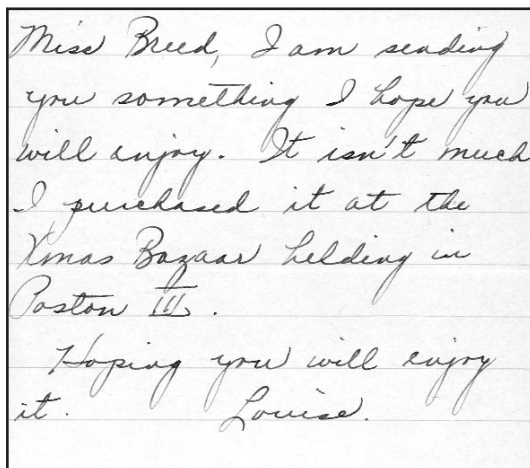 Miss Breed, I am sending
you something I hope you
will enjoy. It isn't much
I purchased it at the
Xmas Bazaar helding in
Poston III.
Hoping you will enjoy
it. Louise.